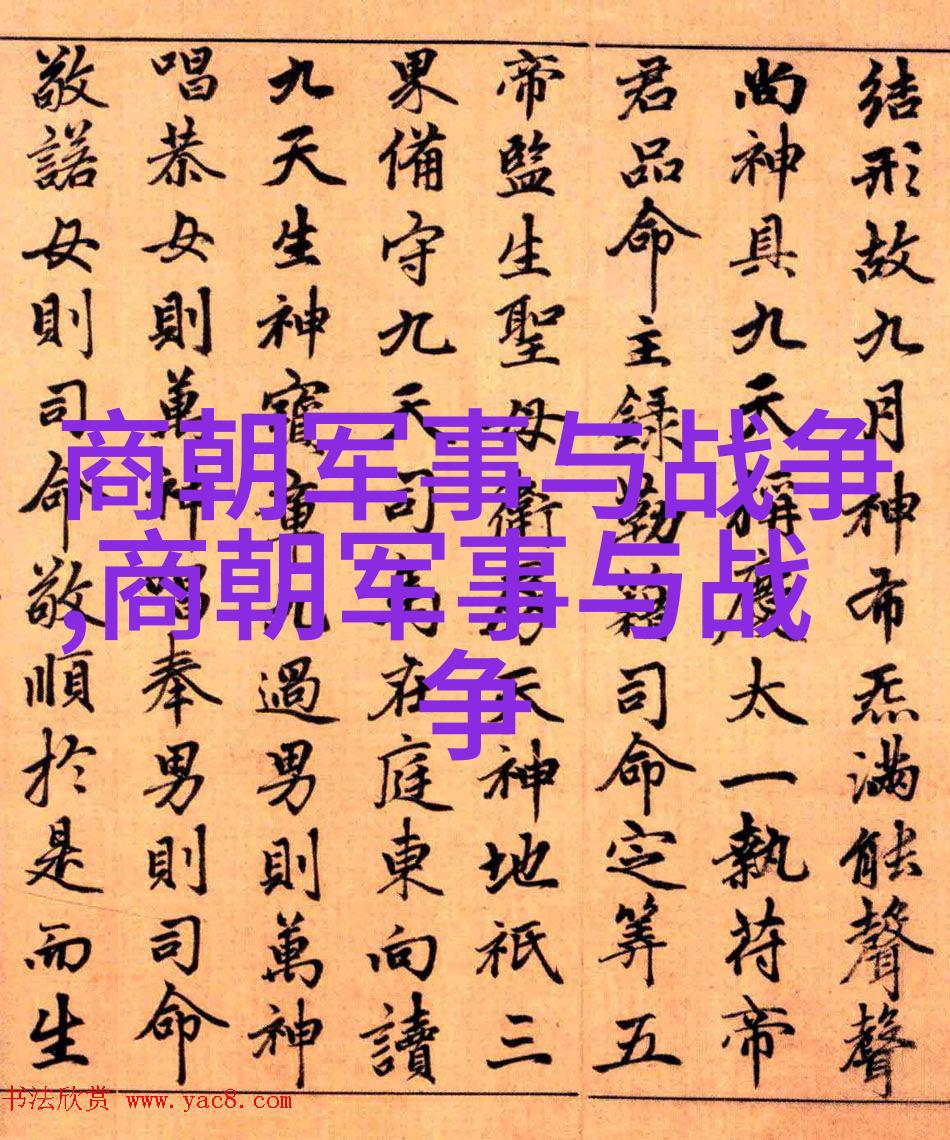 結形故九月神布炁滿能聲聲
尚神具九天稱慶太一執苻帝
君品命主錄勒籍司命定筭五
帝監生聖母衛房天神地祇三
果備守九天司馬在庭東向讀
九天生神寶章九過男則萬神
唱恭女則萬神唱奉男則司命
敬諾女則司命敬順於是而生
商朝军事与战争
,商朝军事与战
争
书法欣赏 www.yac8.com